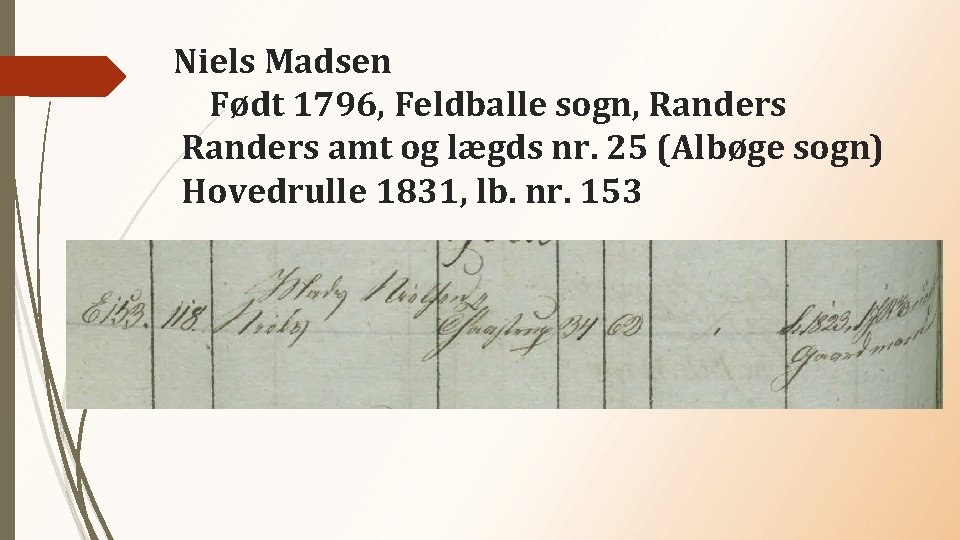 Niels Madsen
Født 1796, Feldballe sogn, Randers
Randers amt og lægds nr. 25 (Albøge sogn)
Hovedrulle 1831, lb. nr. 153
Mads Nielsen
E153. 118 Niels 34 62 S. 1823.
Gaardmand